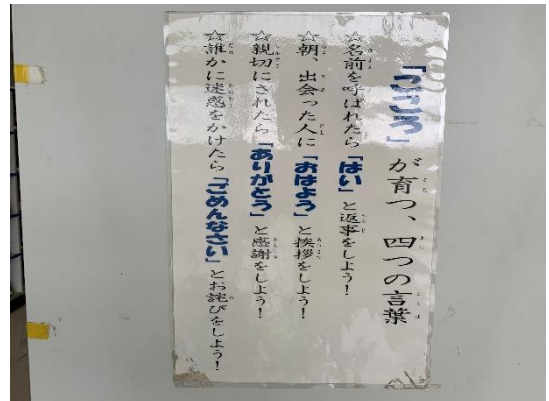 「こころ」が育つ、四つの言葉
☆名前を呼ばれたら「はい」と返事をしよう!
☆朝、出会った人に「おはよう」と挨拶をしよう!
☆親切にされたら「ありがとう」と感謝をしよう!
☆誰かに迷惑をかけたら「ごめんなさい」とお詫びをしよう!